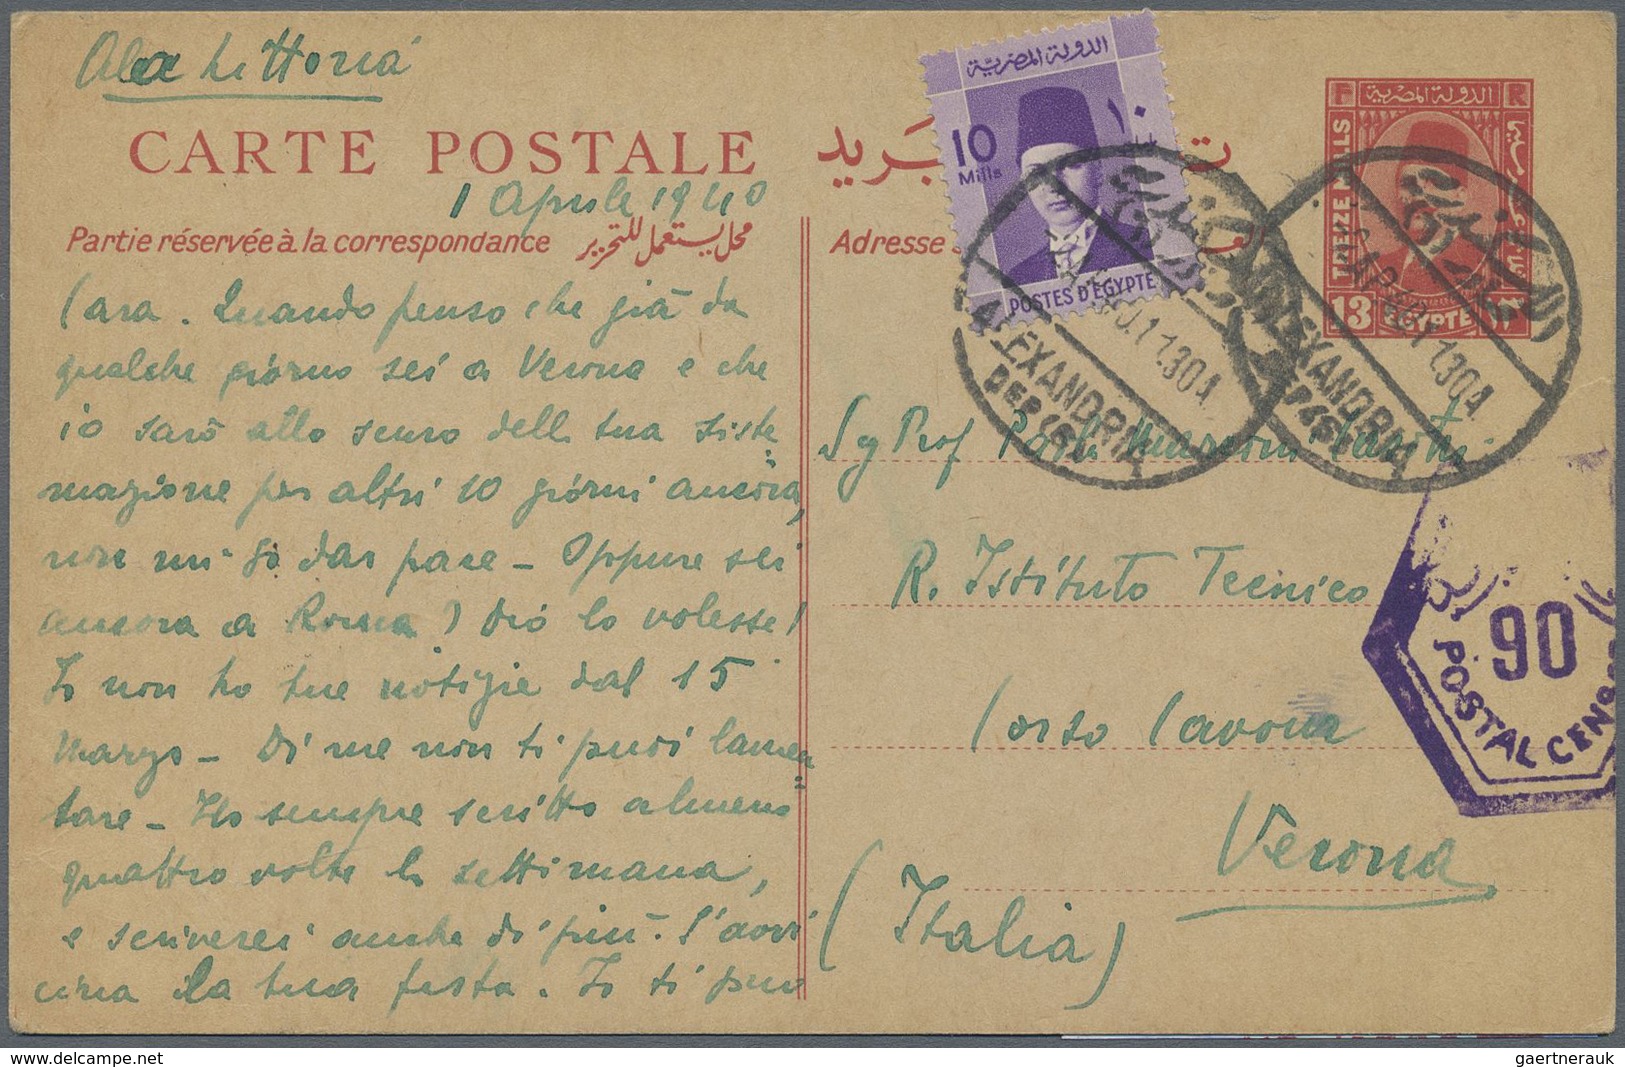 Ala Littoria
CARTE POSTALE
بريد
1 Aprile 1940
Partie réservée à la correspondance محل يستعمل للتحرير
Cara. Quando penso che già da
qualche giorno sei a Verona e che
io sarò allo scuro della tua siste
mazione per altri 10 giorni ancora,
non mi so dar pace - Oppure sei
ancora a Roma? Dio lo volesse!
Io non ho tue notizie dal 15
Marzo - Di me non ti puoi lamen
tare - Ho sempre scritto almeno
quattro volte la settimana,
e scriverei anche di più. S'avvi
cina la tua festa. Io ti
Adresse
الدولة المصرية
10 ١٠
Mills
POSTES D'EGYPTE
الدولة المصرية
TREIZE MILLS
13 EGYPTE ١٣
ALEXANDRIA
ALEXANDRIA
Prof
R. Istituto Tecnico
Corso Cavour
Verona
(Italia)
90
POSTAL CENSOR
delcampe.net
gaertnerauk